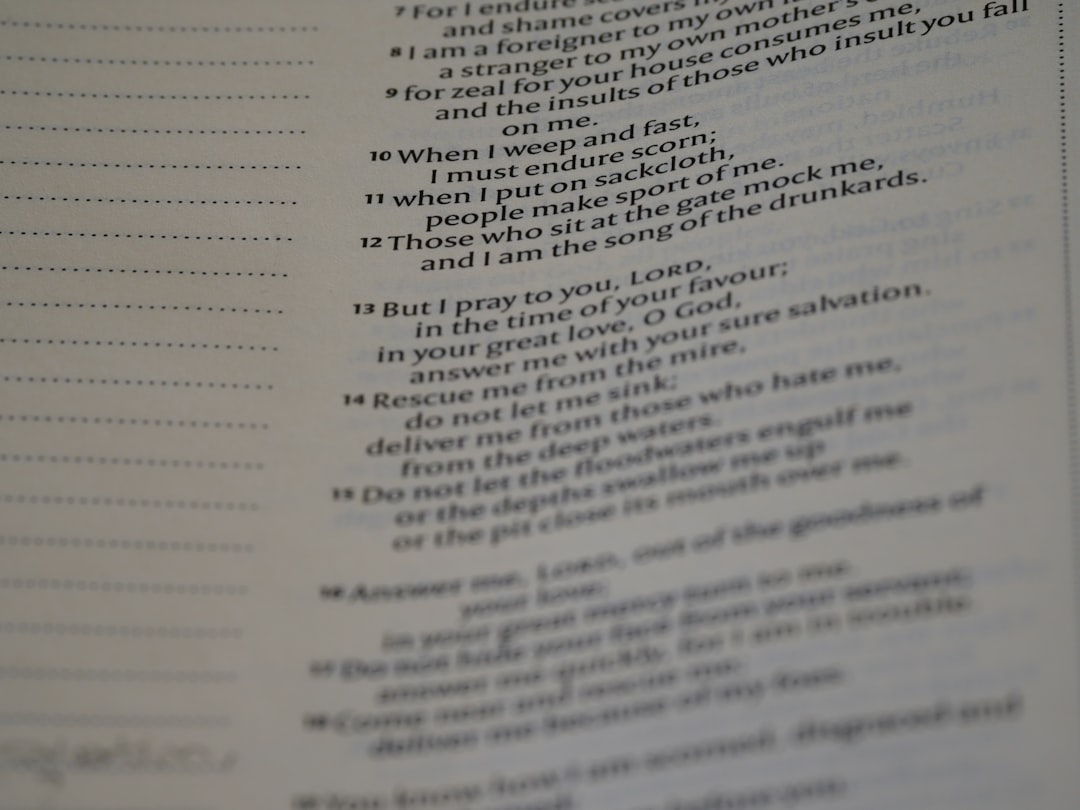 7 For I endure
and shame covers
8 I am a foreigner to my own
a stranger to my own mother's
9 for zeal for your house consumes me,
and the insults of those who insult you fall
on me.
10 When I weep and fast,
I must endure scorn;
11 when I put on sackcloth,
people make sport of me.
12 Those who sit at the gate mock me,
and I am the song of the drunkards.
13 But I pray to you, LORD,
in the time of your favour;
in your great love, O God,
answer me with your sure salvation.
14 Rescue me from the mire,
do not let me sink;
deliver me from those who hate me,
from the deep waters.
15 Do not let the floodwaters engulf me
or the depths swallow me up
or the pit close its mouth over me.
16 Answer me, LORD, out of the goodness of
your love;
in your great mercy turn to me.
17 Do not hide your face from your servant;
answer me quickly, for I am in trouble.
18 Come near and rescue me;
deliver me because of my foes.
You know how I am scorned, disgraced and